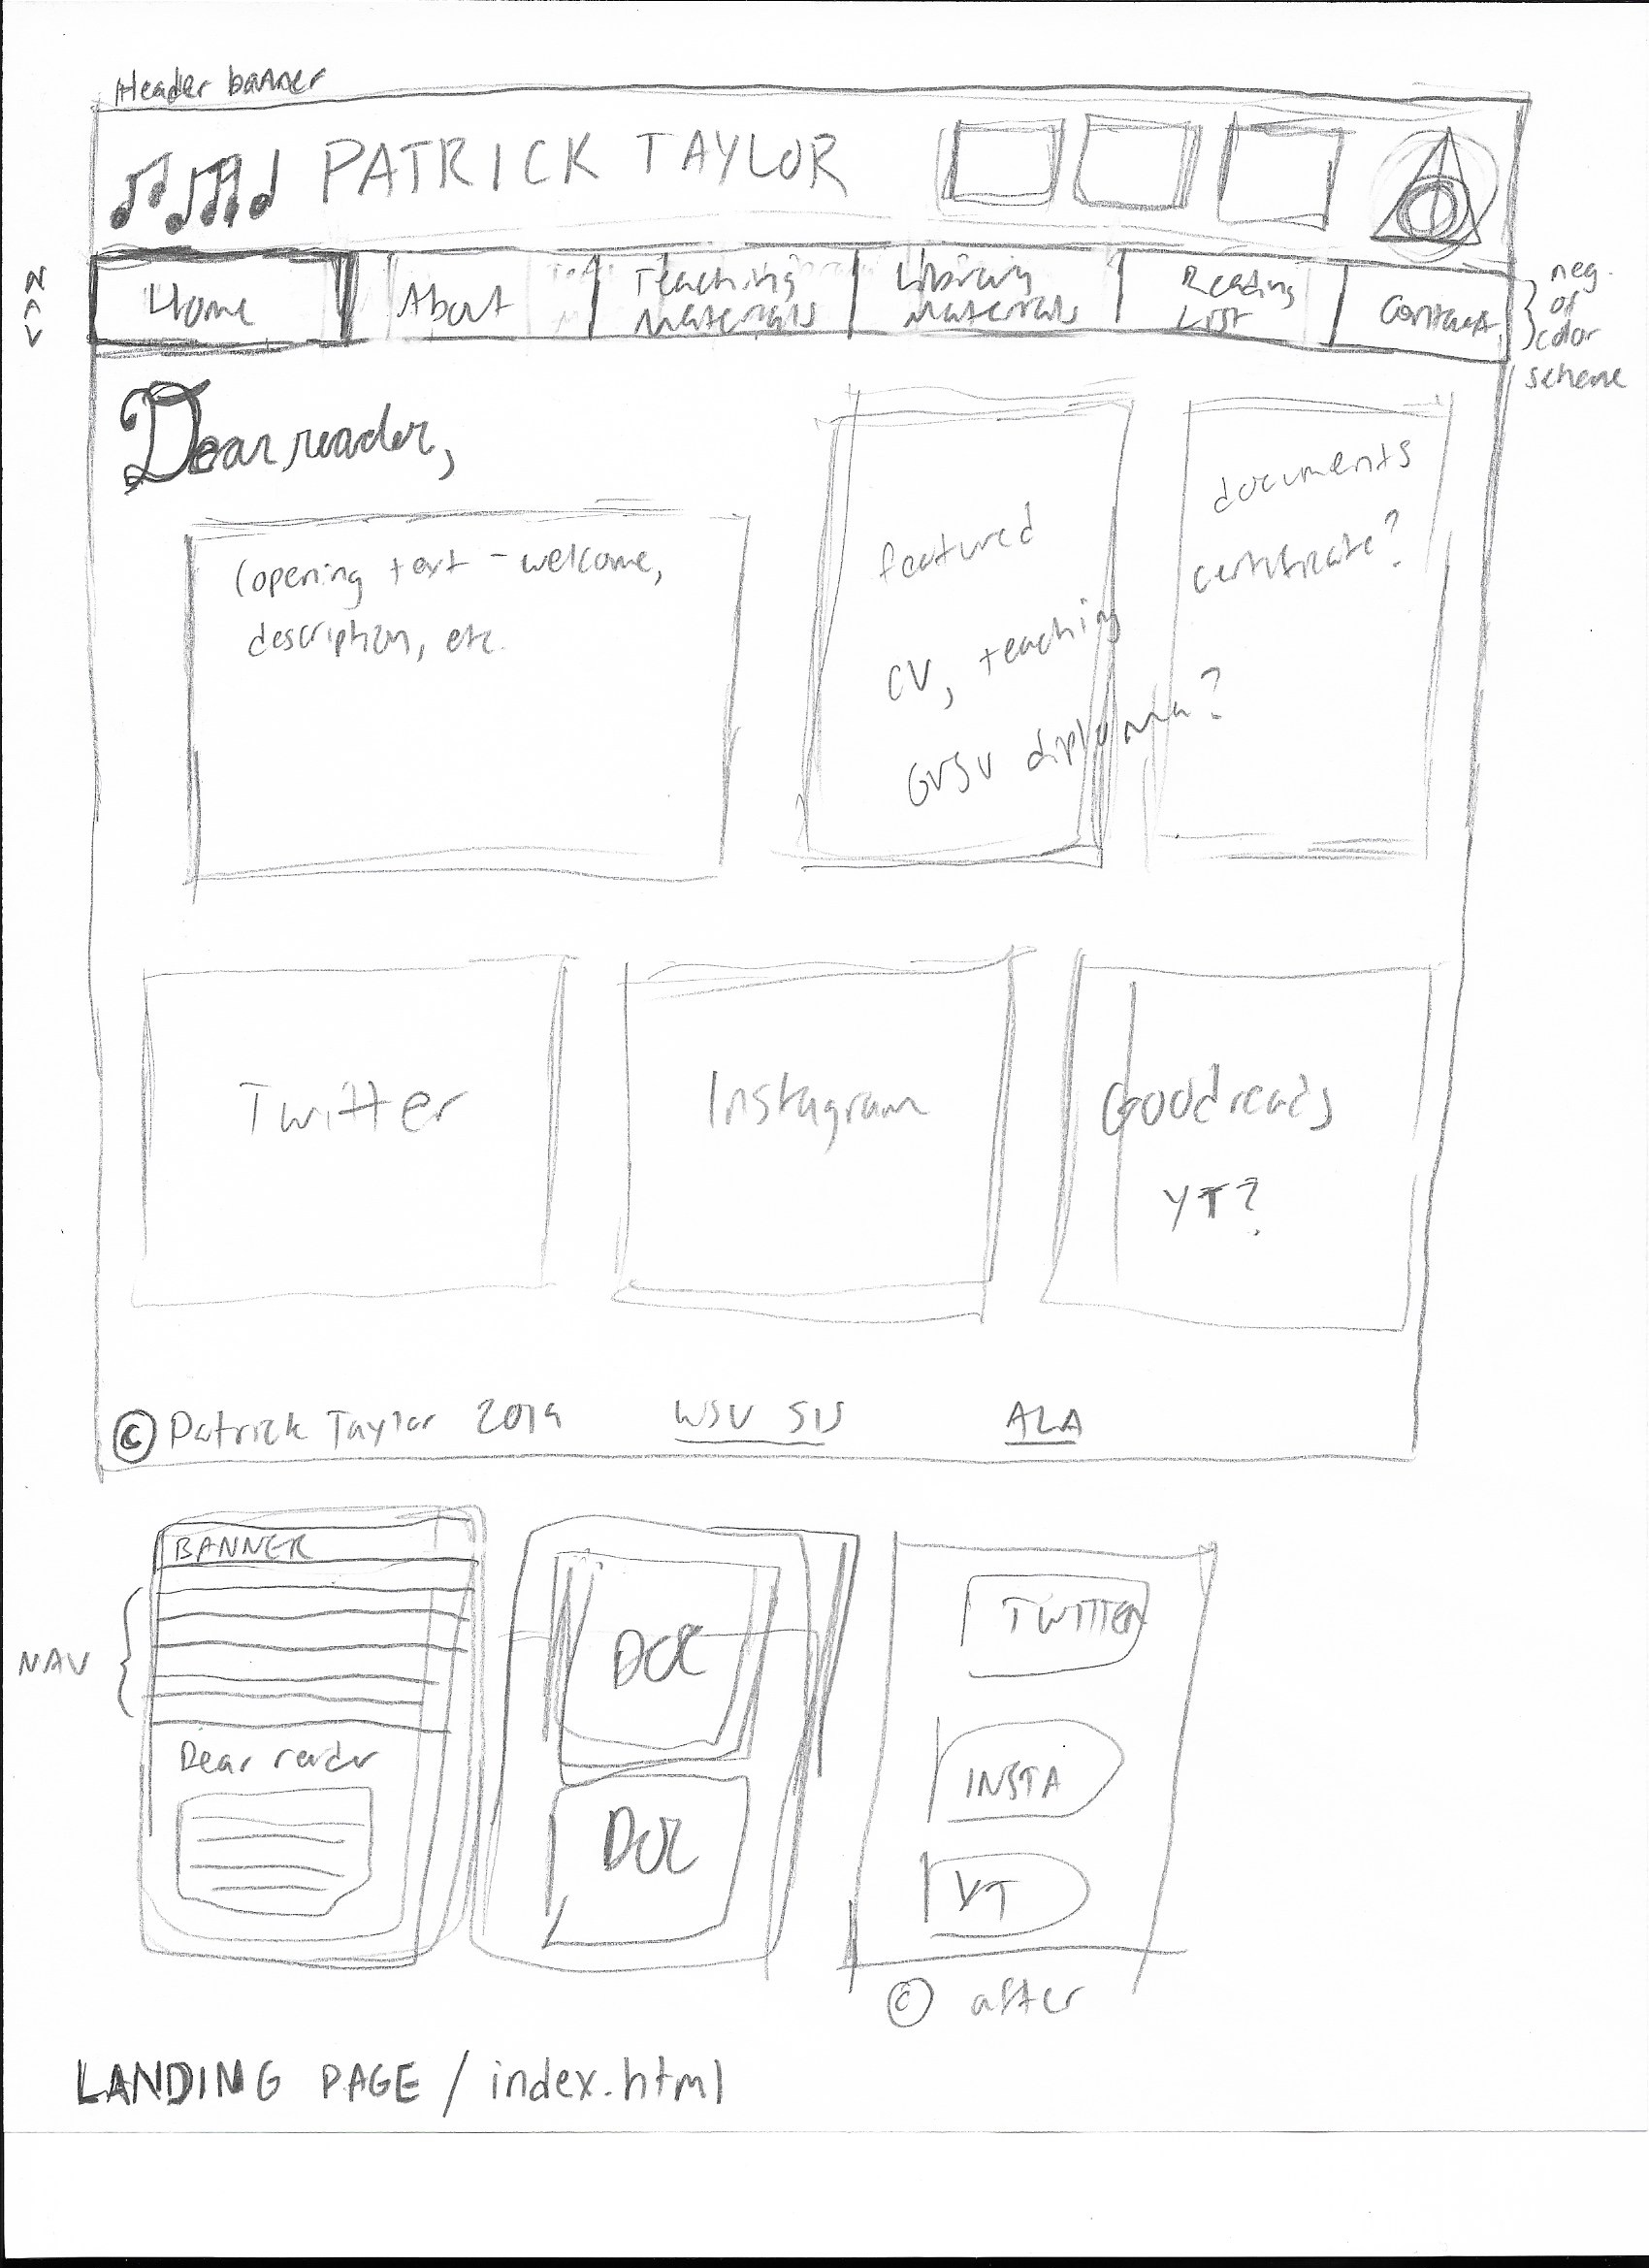 Header banner
PATRICK TAYLOR
NAV
Home
About
Teaching
Materials
Library
Materials
Reading
List
Contact
neg.
of
color
scheme
Dear reader,
(opening text - welcome,
description, etc.
featured
documents
CV, teaching
certificate?
GVSU diploma?
Twitter
Instagram
Goodreads
YT?
© Patrick Taylor 2019
WSU SIS
ALA
BANNER
NAV
Dear reader
DOC
DOC
TWITTER
INSTA
YT
© after
LANDING PAGE / index.html